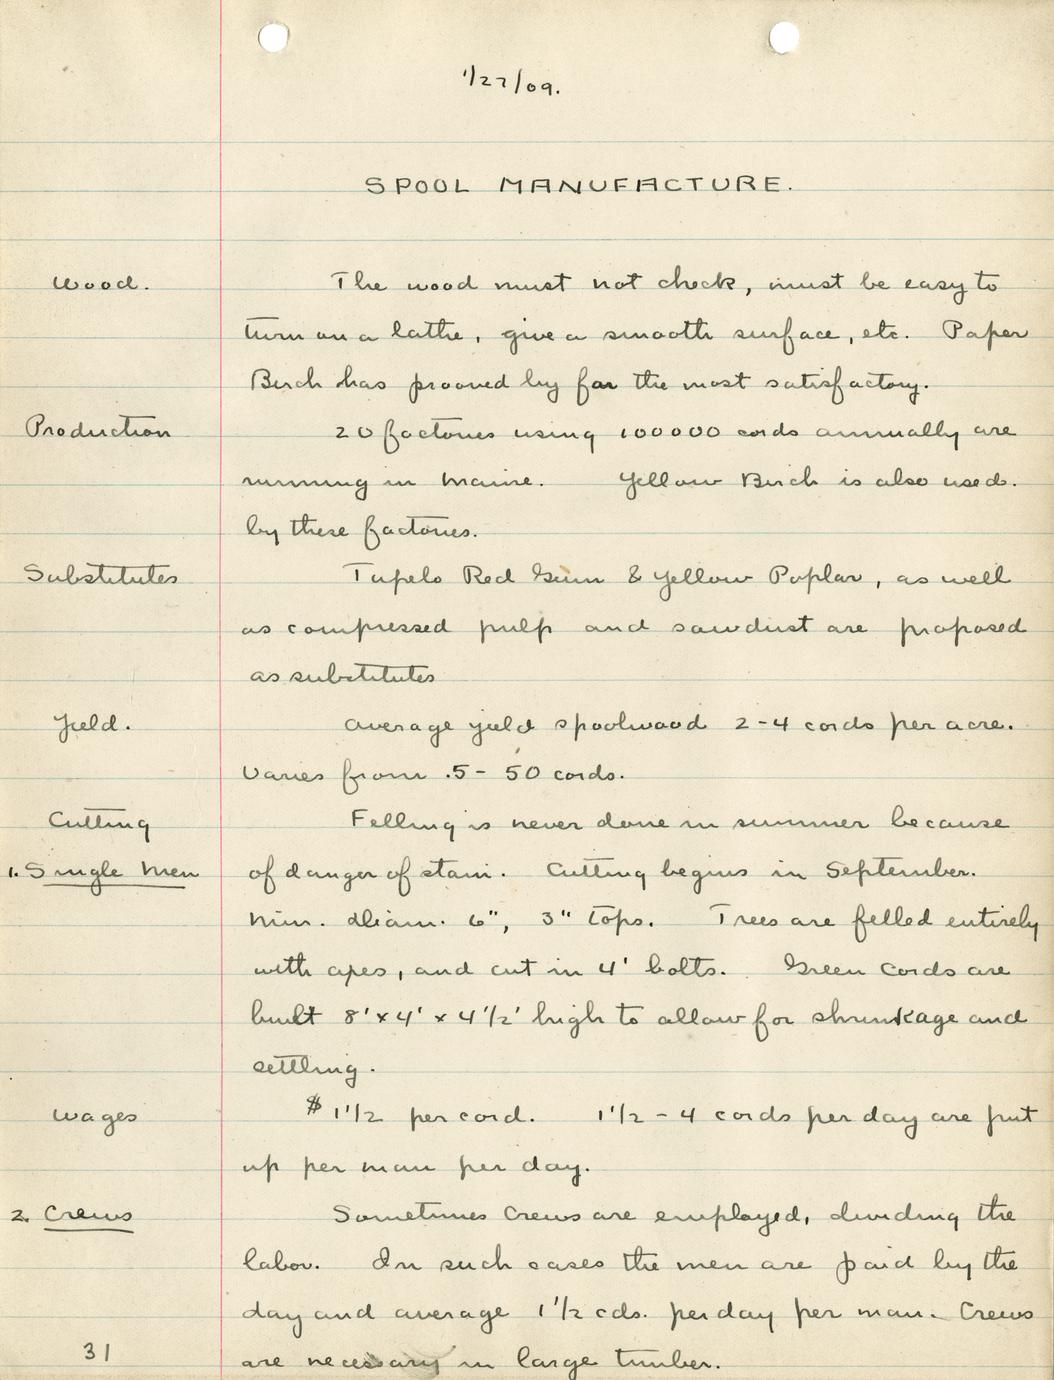 1/27/09.
SPOOL MANUFACTURE.
Wood. The wood must not check, must be easy to
turn on a lathe, give a smooth surface, etc. Paper
Birch has prooved by far the most satisfactory.
Production 20 factories using 100000 cords annually are
running in Maine. Yellow Birch is also used.
by these factories.
Substitutes Tupelo Red Gum & Yellow Poplar, as well
as compressed pulp and sawdust are proposed
as substitutes
Yield. Average yield spoolwood 2-4 cords per acre.
Varies from .5 - 50 cords.
Cutting Felling is never done in summer because
1. Single Men of danger of stain. Cutting begins in September.
Min. diam. 6", 3" tops. Trees are felled entirely
with axes, and cut in 4' bolts. Green cords are
built 8' x 4' x 4 1/2' high to allow for shrinkage and
settling.
Wages $ 1 1/2 per cord. 1 1/2 - 4 cords per day are put
up per man per day.
2. Crews Sometimes Crews are employed, dividing the
labor. In such cases the men are paid by the
day and average 1 1/2 cds. per day per man. Crews
are necessary in large timber.
31